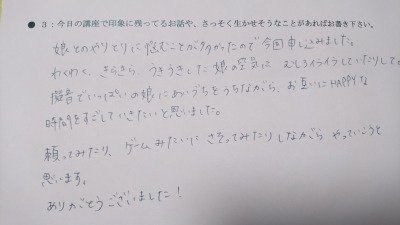 ● 3：今日の講座で印象に残ってるお話や、さっそく生かせそうなことがあればお書き下さい。
娘とのやりとりに悩むことが多かったので今回申し込みました。
わくわく、きらきら、うきうきした娘の空気に むしろイライラしていたりして。
擬音でいっぱいの娘にあいづちをうちながら、お互いにHAPPYな
時間をすごしていきたいと思いました。
頼ってみたり、ゲームみたいにさそってみたりしながら やっていこうと
思います。
ありがとうございました！